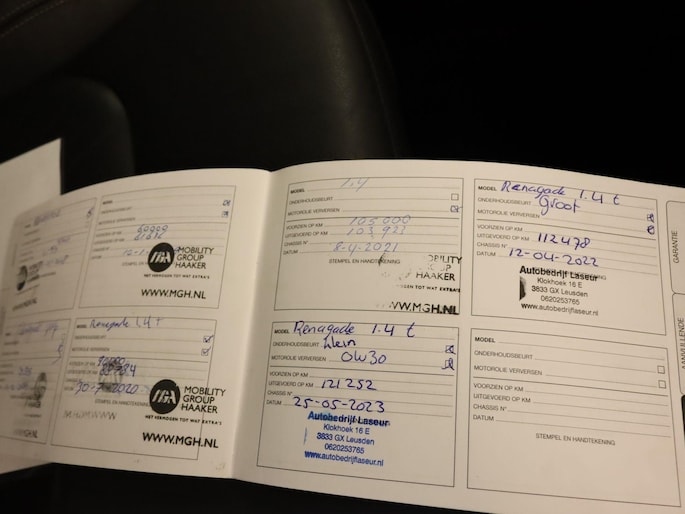 MODEL
ONDERHOUDSBEURT
MOTOROLIE VERVERSEN
VOORZIEN OP KM
UITGEVOERD OP KM
CHASSIS N°
DATUM
MOBILITY
GROUP
HAAKER
HET VERMOGEN TOT WAT EXTRA'S
WWW.MGH.NL
MODEL Renegade 1.4 T
ONDERHOUDSBEURT
MOTOROLIE VERVERSEN
VOORZIEN OP KM 90000
UITGEVOERD OP KM
CHASSIS N°
DATUM 30-7-2020
STEMPEL EN HANDTEKENING
MOBILITY
GROUP
HAAKER
HET VERMOGEN TOT WAT EXTRA'S
WWW.MGH.NL
MODEL 1.4
ONDERHOUDSBEURT
MOTOROLIE VERVERSEN
VOORZIEN OP KM 105000
UITGEVOERD OP KM 103921
CHASSIS N°
DATUM 8-4-2021
STEMPEL EN HANDTEKENING
MOBILITY
GROUP
HAAKER
HET VERMOGEN TOT WAT EXTRA'S
WWW.MGH.NL
MODEL Renagade 1.4 t
ONDERHOUDSBEURT Klein
MOTOROLIE VERVERSEN OW30
VOORZIEN OP KM
UITGEVOERD OP KM 121252
CHASSIS N°
DATUM 25-05-2023
Autobedrijf Laseur
Klokhoek 16 E
3833 GX Leusden
0620253765
www.autobedrijflaseur.nl
MODEL Renagade 1.4 t
ONDERHOUDSBEURT Groot
MOTOROLIE VERVERSEN
VOORZIEN OP KM
UITGEVOERD OP KM 112478
CHASSIS N°
DATUM 12-04-2022
Autobedrijf Laseur
Klokhoek 16 E
3833 GX Leusden
0620253765
www.autobedrijflaseur.nl
MODEL
ONDERHOUDSBEURT
MOTOROLIE VERVERSEN
VOORZIEN OP KM
UITGEVOERD OP KM
CHASSIS N°
DATUM
STEMPEL EN HANDTEKENING
GARANTIE
AANVULLENDE